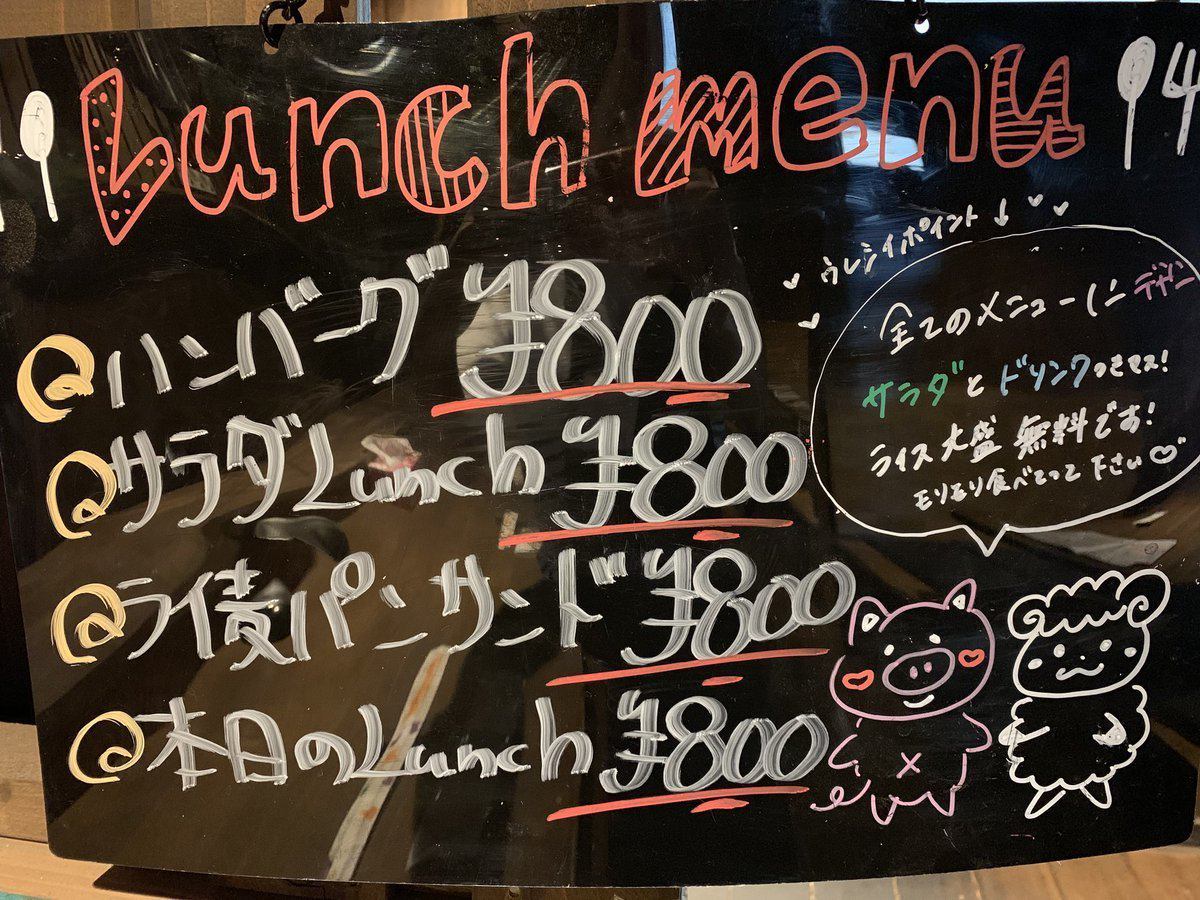 Lunch menu
@ハンバーグ ¥800
@サラダLunch ¥800
@ライ麦パンサンド ¥800
@本日のLunch ¥800
ウレシイポイント↓
全てのメニューに
サラダとドリンクつきマス!
ライス大盛無料です!
モリモリ食べてって下さい♡